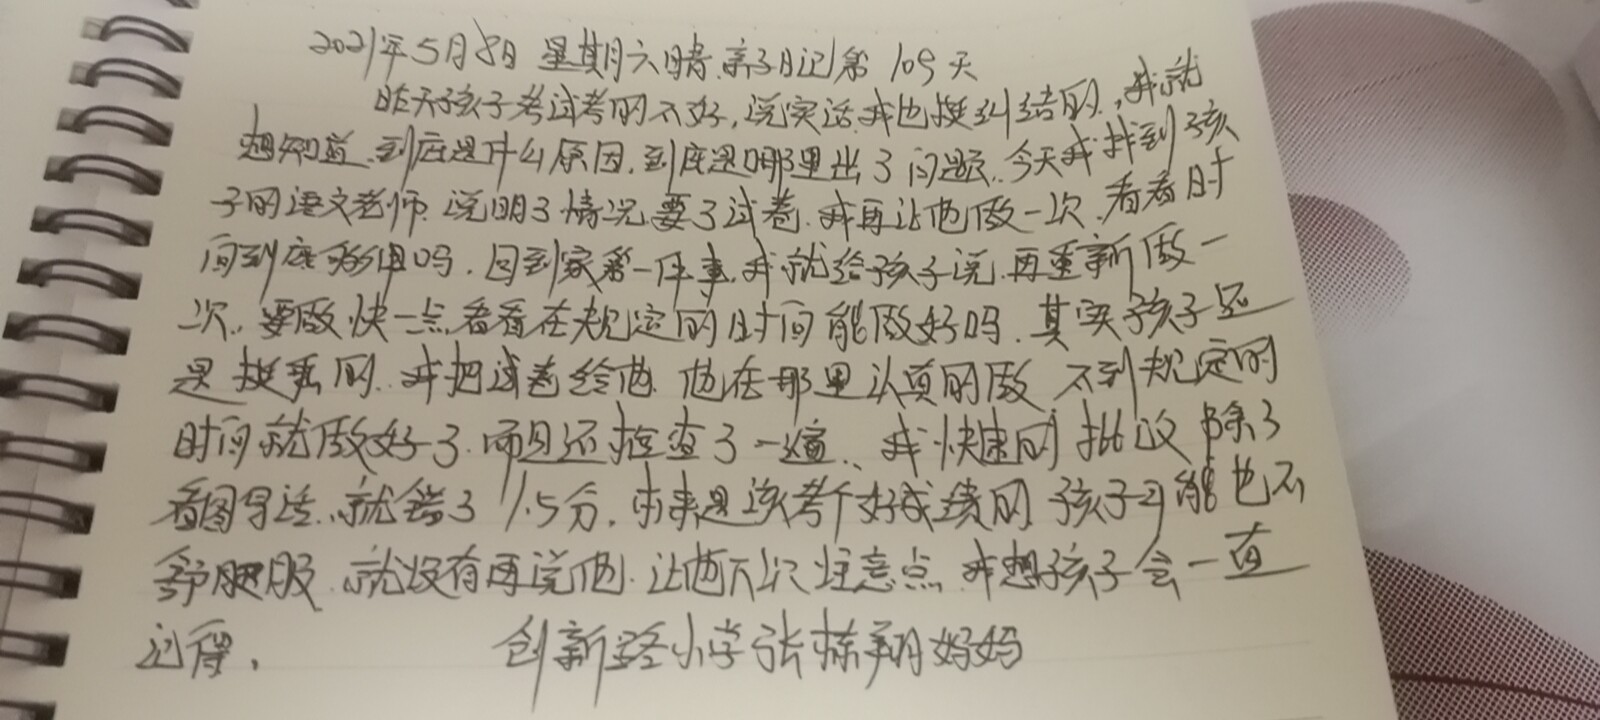 2021年5月8日 星期六 晴 亲子日记第109天
昨天孩子考试考的不好，说实话我也挺纠结的，我就
想知道到底是什么原因，到底是哪里出了问题，今天我找到孩
子的语文老师，说明了情况要了试卷，我再让他做一次，看看时
间到底够用吗，回到家第一件事，我就给孩子说，再重新做一
次，要做快一点看看在规定的时间能做好吗，其实孩子还
是挺乖的，我把试卷给他，他在那里认真的做，不到规定的
时间就做好了，而且还检查了一遍，我快速的批改，除了
看图写话，就错了1.5分，本来是该考个好成绩的 孩子可能也不
舒服，就没有再说他，让他下次注意点，我想孩子会一直
记得，
创新路小学张栋翔妈妈